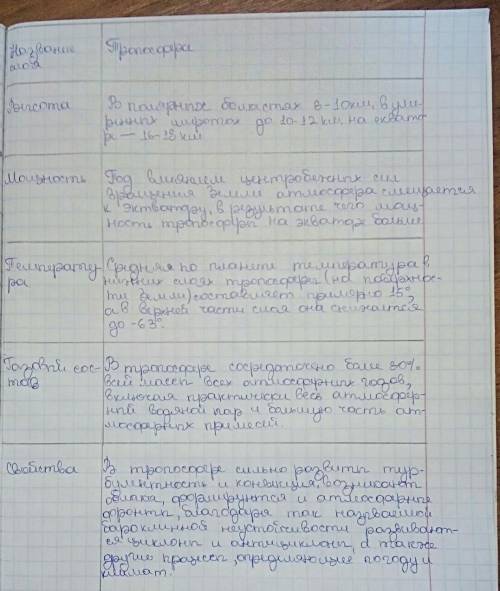 Название Тропосфера
слоя
Высота В полярных областях 8-10 км, в уме-
ренных широтах до 10-12 км, на эквато-
ре — 16-18 км
Мощность Под влиянием центробежных сил
вращения Земли атмосфера смещается
к экватору, в результате чего мощ-
ность тропосферы на экваторе больше
Температу- Средняя по планете температура в
ра нижних слоях тропосферы (на поверхнос-
ти земли) составляет примерно 15°,
а в верхней части слоя она снижается
до -63°.
Газовый сос- В тропосфере сосредоточено более 80%
тав всей массы всех атмосферных газов,
включая практически весь атмосфер-
ный водяной пар и большую часть ат-
мосферных примесей.
Свойства В тропосфере сильно развиты тур-
булентность и конвекция, возникают
облака, формируются и атмосферные
фронты, благодаря так называемой
бароклинной неустойчивости развивают-
ся циклоны и антициклоны, а также
другие процессы, определяющие погоду и
климат.